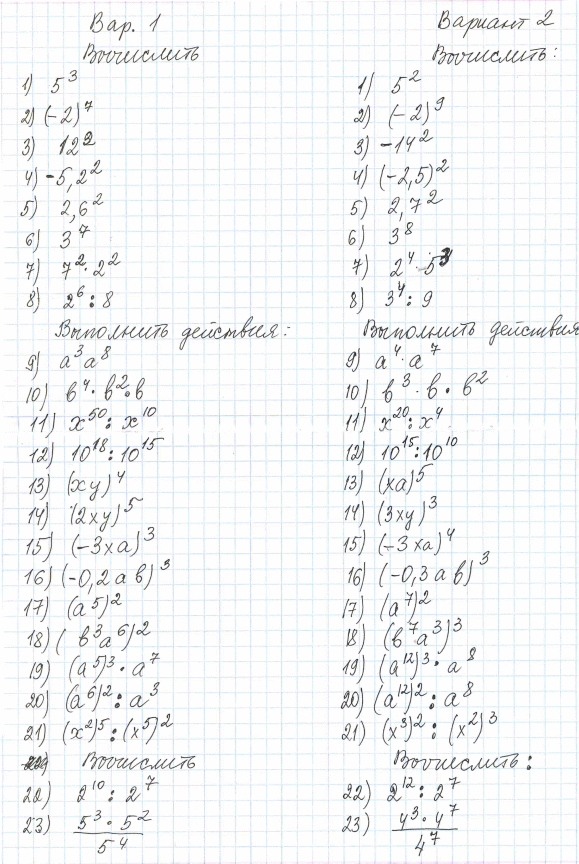 Вар. 1
Вычислить
1) 5³
2) (-2)⁷
3) 12²
4) -5,2²
5) 2,6²
6) 3⁷
7) 7² · 2²
8) 2⁶ : 8
Выполнить действия:
9) a³a⁸
10) b⁴ · b² · b
11) x⁵⁰ : x¹⁰
12) 10¹⁸ : 10¹⁵
13) (xy)⁴
14) (2xy)⁵
15) (-3xa)³
16) (-0,2ab)³
17) (a⁵)²
18) (b³a⁶)²
19) (a⁵)³ · a⁷
20) (a⁶)² : a³
21) (x²)⁵ : (x⁵)²
Вычислить
22) 2¹⁰ : 2⁷
23) 5³ · 5²
5⁴
Вариант 2
Вычислить:
1) 5²
2) (-2)⁹
3) -14²
4) (-2,5)²
5) 2,7²
6) 3⁸
7) 2⁴ · 5³
8) 3⁴ : 9
Выполнить действия
9) a⁴ · a⁷
10) b³ · b · b²
11) x²⁰ : x⁴
12) 10¹⁵ : 10¹⁰
13) (xa)⁵
14) (3xy)³
15) (-3xa)⁴
16) (-0,3ab)³
17) (a⁷)²
18) (b⁷a³)³
19) (a¹²)³ · a⁸
20) (a¹²)² : a⁸
21) (x³)² : (x²)³
Вычислить:
22) 2¹² : 2⁷
23) 4³ · 4⁷
4⁷